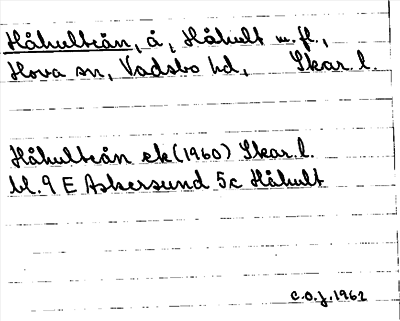 Håhultsån, å, Håhult m.fl.,
Hova sn, Vadsbo hd, Skar. l.
Håhultsån ek (1960) Skar. l.
bl. 9 E Askersund 5c Håhult
C.O.J. 1962